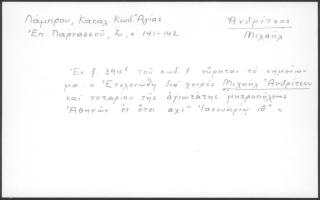 Λάμπρου, Καταλ. Κωδ. Ἁγίας
Ἐπ. Παρνασσοῦ, 2, σ. 141-142
Ἀνδρίτσος
Μιχαήλ
Ἐν φ. 394β τοῦ κώδ. 1 εὕρηται τὸ σημείω-
μα: « Ἐτελειώθη διὰ χειρὸς Μιχαὴλ Ἀνδρίτσου
καὶ νοταρίου τῆς ἁγιωτάτης μητροπόλεως
Ἀθηνῶν ἐν ἔτει αχι" Ἰανουαρίῳ ιθ" »